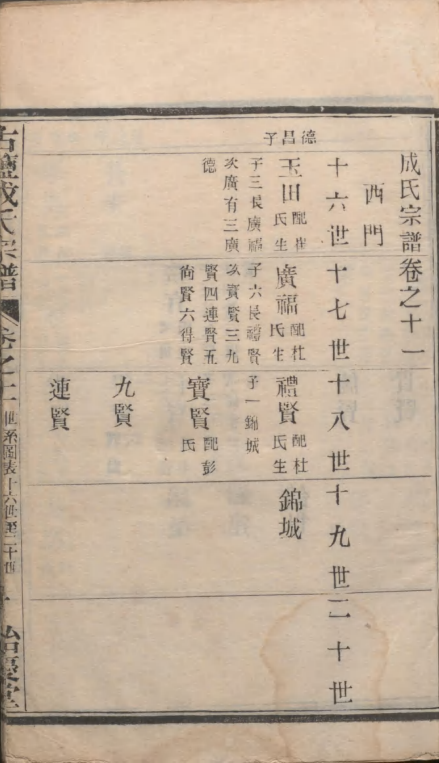 成氏宗譜卷之十一
西門
十六世
十七世
十八世
十九世
二十世
德昌子
玉田配崔氏生
子三長廣福
次廣有三廣
德
廣福配杜氏生
子六長禮賢
次寶賢三九
賢四連賢五
尙賢六得賢
禮賢配杜氏生
子一錦城
寶賢配彭氏
九賢
連賢
錦城
成氏宗譜
卷之十一
世系圖表十六世至二十世